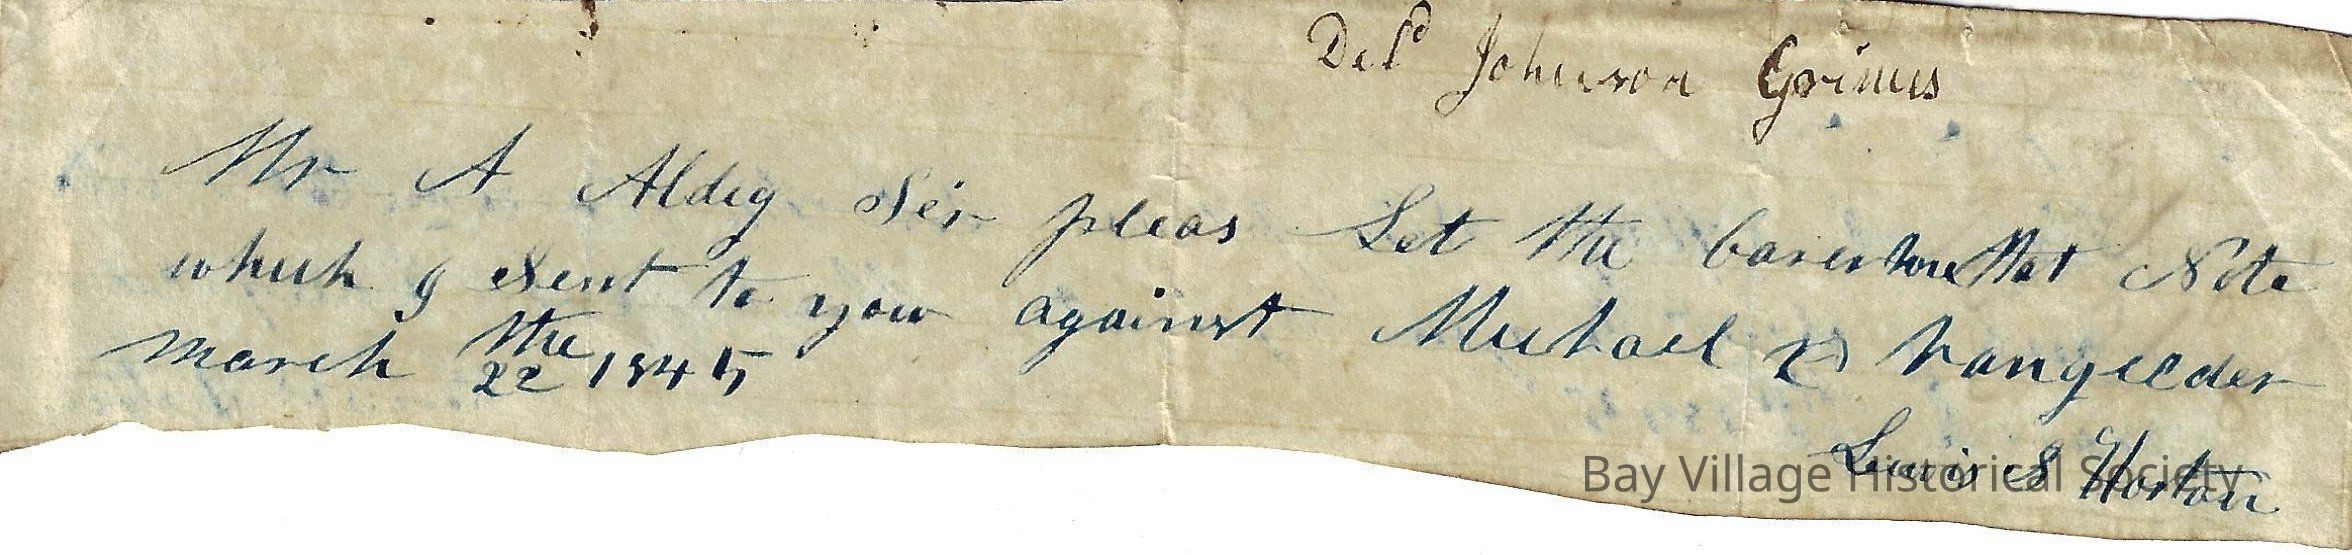 Deld Johnson Grimes
Mr A Aldig Sir pleas Let the barer have that Note
which I sent to you against Michael Vangilder
March the 22 1845
Lewis S Horton
Bay Village Historical Society